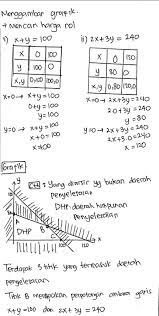 Menggambar grafik
+ Mencari harga nol
i) x+y = 100
x 0 100
y 100 0
x,y 0,100 100,0
x=0 → x+y = 100
0+y = 100
y = 100
y=0 → x+y = 100
x+0 = 100
x = 100
ii) 2x+3y = 240
x 0 120
y 80 0
x,y 0,80 120,0
x=0 → 2x+3y = 240
2.0+3y = 240
y = 80
y=0 → 2x+3y = 240
2x+3.0 = 240
x = 120
Grafik
Yang diarsir yg bukan daerah
penyelesaian
DHP : daerah himpunan
Penyelesaian
100
80
DHP
B
100
120
Terdapat 3 ttk yang termasuk daerah
penyelesaian
Titik B merupakan perpotongan antara garis
x+y = 100 dan 2x + 3y = 240